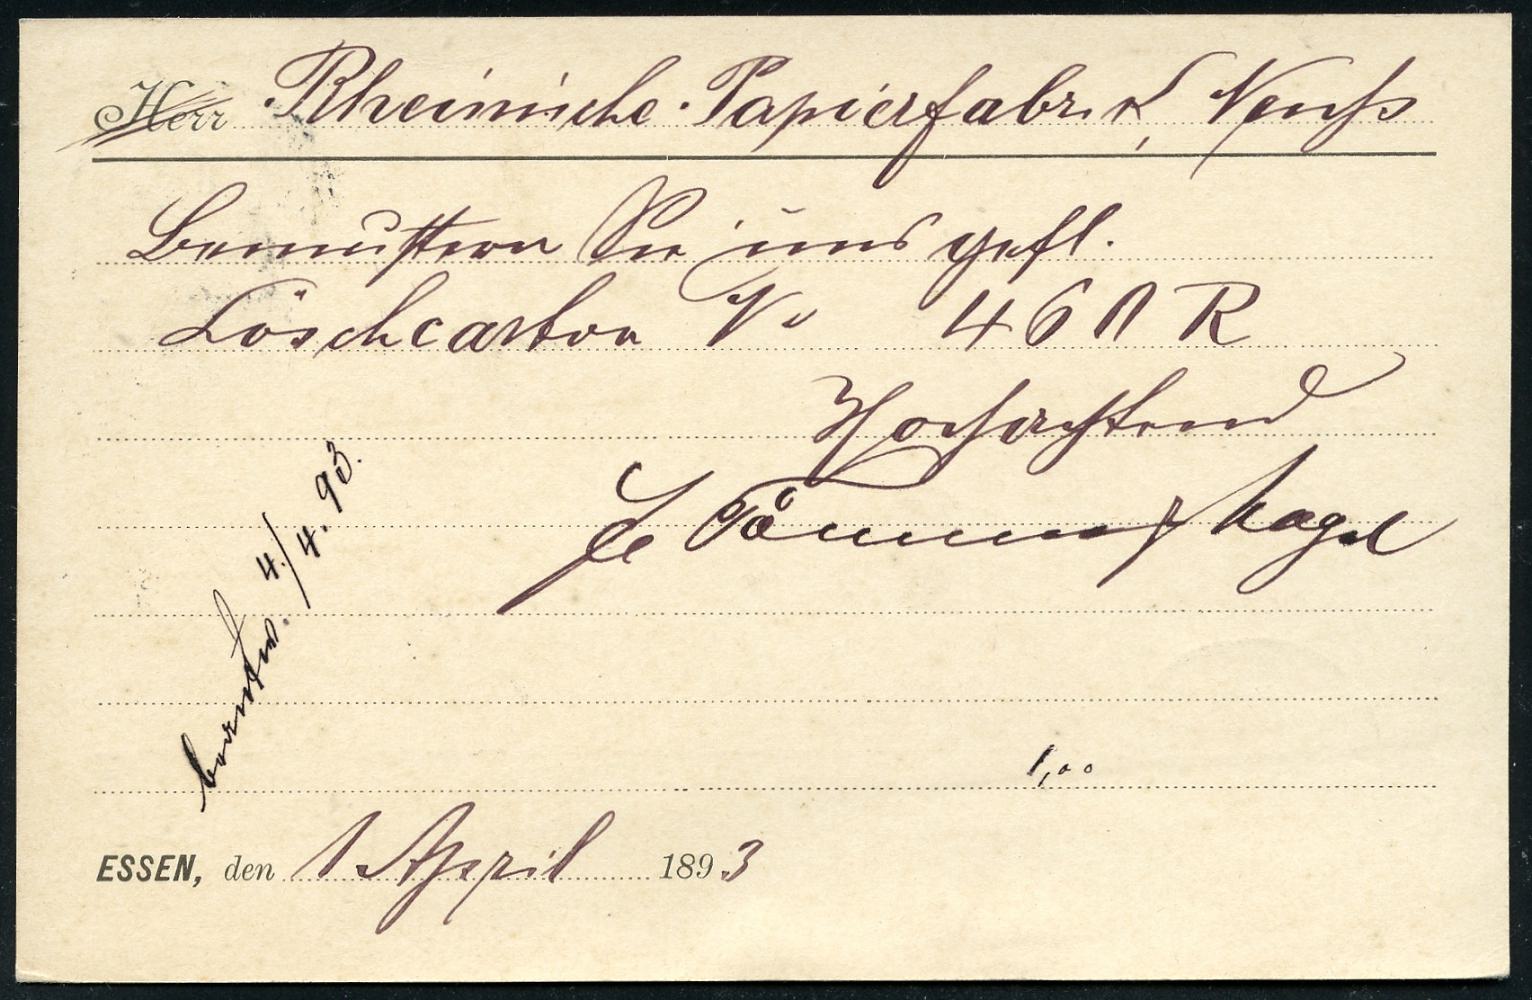 Herr Rheinische Papierfabrik, Neuss
Bemustern Sie uns gefl.
Löschcarton No 460 R
Hochachtend
Nagel
4./4. 93.
1,00
ESSEN, den 1 April 1893